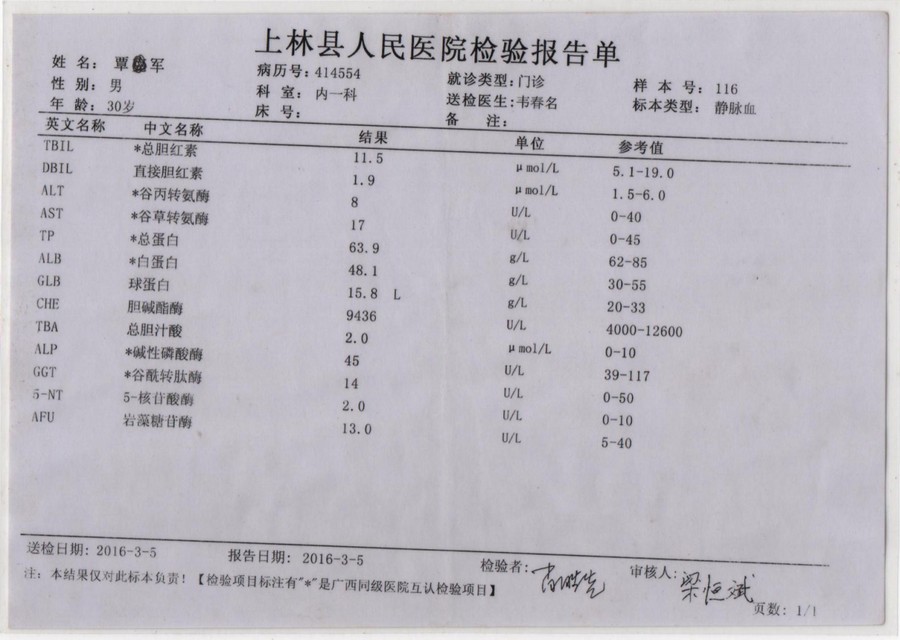 上林县人民医院检验报告单
姓 名: 覃 军 病历号: 414554 就诊类型: 门诊 样 本 号: 116
性 别: 男 科 室: 内一科 送检医生: 韦春名 标本类型: 静脉血
年 龄: 30岁 床 号: 备 注:
英文名称 中文名称 结果 单位 参考值
TBIL *总胆红素 11.5 μmol/L 5.1-19.0
DBIL 直接胆红素 1.9 μmol/L 1.5-6.0
ALT *谷丙转氨酶 8 U/L 0-40
AST *谷草转氨酶 17 U/L 0-45
TP *总蛋白 63.9 g/L 62-85
ALB *白蛋白 48.1 g/L 30-55
GLB 球蛋白 15.8 L g/L 20-33
CHE 胆碱酯酶 9436 U/L 4000-12600
TBA 总胆汁酸 2.0 μmol/L 0-10
ALP *碱性磷酸酶 45 U/L 39-117
GGT *谷酰转肽酶 14 U/L 0-50
5-NT 5-核苷酸酶 2.0 U/L 0-10
AFU 岩藻糖苷酶 13.0 U/L 5-40
送检日期: 2016-3-5 报告日期: 2016-3-5 检验者: 审核人: 梁恒斌
注: 本结果仅对此标本负责!【检验项目标注有"*"是广西同级医院互认检验项目】
页数: 1/1